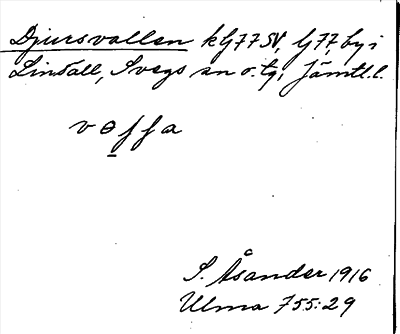 Djursvallen kG77SV, G77, by i
Lindall, Svegs sn o. tg, Jämtl. l.
vɵffa
S. Åsander 1916
Ulma 755:29